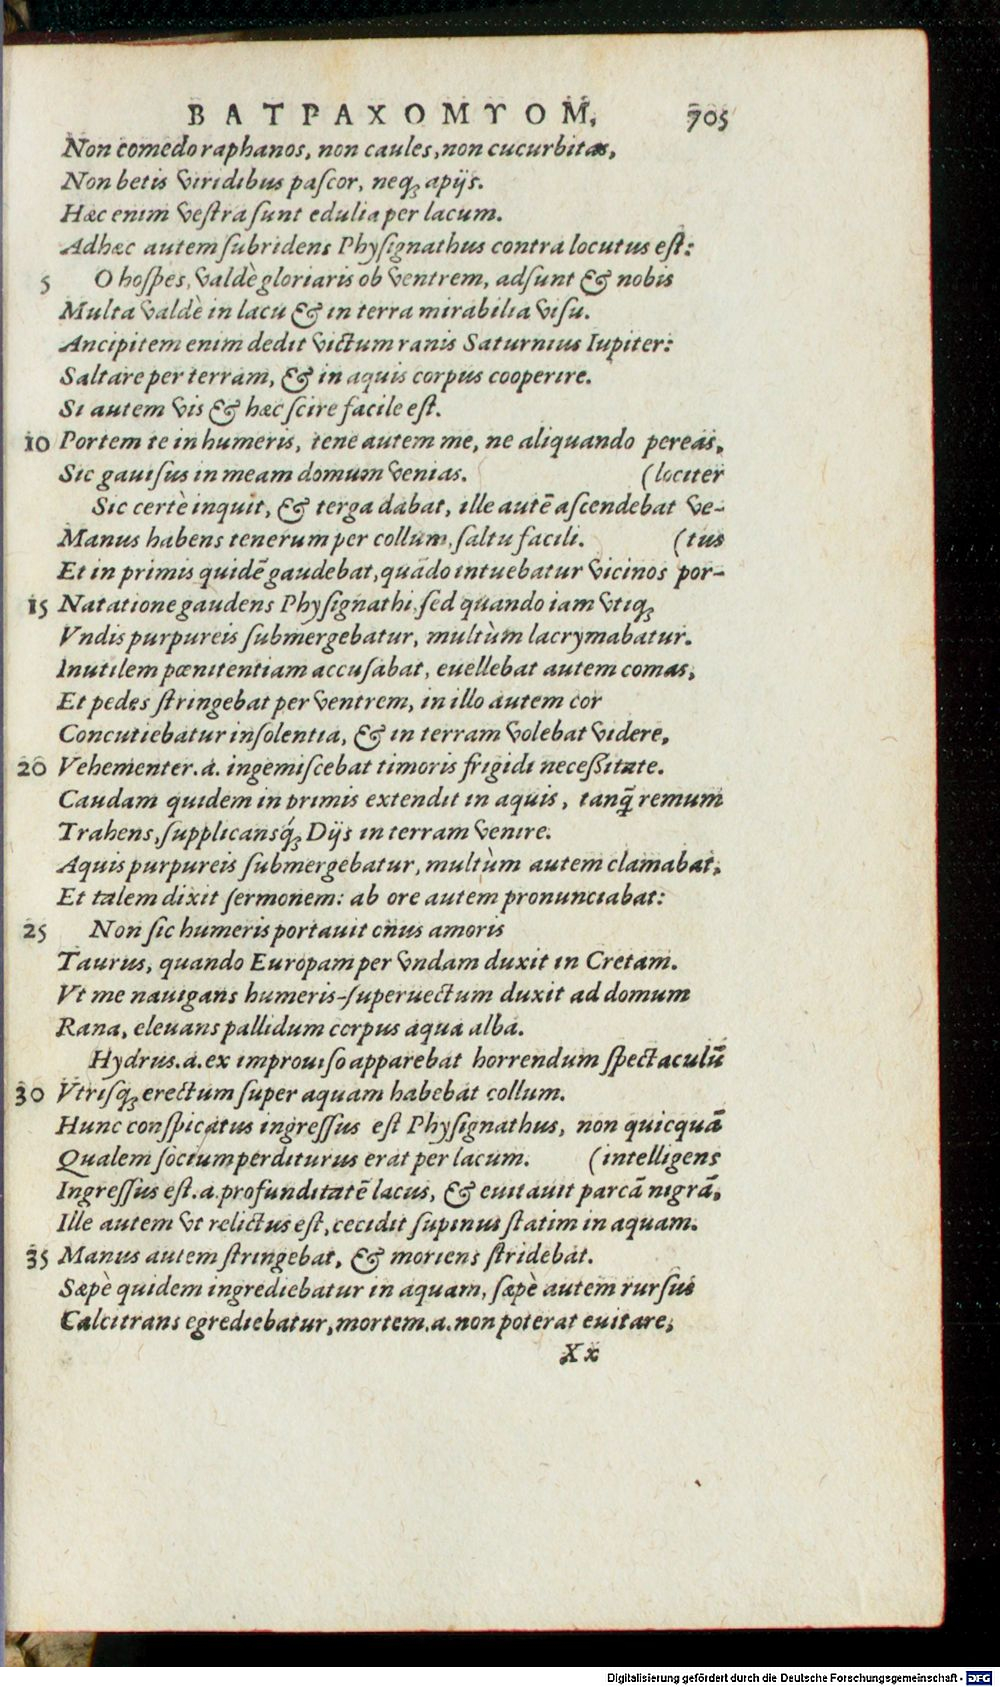 ΒΑΤΡΑΧΟΜΥΟΜ. 705
Non comedo raphanos, non caules, non cucurbitas,
Non betis viridibus pascor, neq; apijs.
Hæc enim vestra sunt edulia per lacum.
Adhæc autem subridens Physignathus contra locutus est:
5 O hospes, valdè gloriaris ob ventrem, adsunt & nobis
Multa valdè in lacu & in terra mirabilia visu.
Ancipitem enim dedit victum ranis Saturnius Iupiter:
Saltare per terram, & in aquis corpus cooperire.
Si autem vis & hæc scire facile est.
10 Portem te in humeris, tene autem me, ne aliquando pereas,
Sic gauisus in meam domum venias. (lociter
Sic certè inquit, & terga dabat, ille autē ascendebat ve-
Manus habens tenerum per collum, saltu facili. (tus
Et in primis quidē gaudebat, quādo intuebatur vicinos por-
15 Natatione gaudens Physignathi, sed quando iam vtiq;
Vndis purpureis submergebatur, multùm lacrymabatur.
Inutilem pœnitentiam accusabat, euellebat autem comas,
Et pedes stringebat per ventrem, in illo autem cor
Concutiebatur insolentia, & in terram volebat videre,
20 Vehementer .a. ingemiscebat timoris frigidi necessitate.
Caudam quidem in primis extendit in aquis, tanq̃ remum
Trahens, supplicansq́; Dijs in terram venire.
Aquis purpureis submergebatur, multùm autem clamabat,
Et talem dixit sermonem: ab ore autem pronunciabat:
25 Non sic humeris portauit onus amoris
Taurus, quando Europam per vndam duxit in Cretam.
Vt me nauigans humeris-superuectum duxit ad domum
Rana, eleuans pallidum corpus aqua alba.
Hydrus .a. ex improuiso apparebat horrendum spectaculū
30 Vtrisq; erectum super aquam habebat collum.
Hunc conspicatus ingressus est Physignathus, non quicquā
Qualem socium perditurus erat per lacum. (intelligens
Ingressus est .a. profunditatē lacus, & euitauit parcā nigrā,
Ille autem vt relictus est, cecidit supinus statim in aquam.
35 Manus autem stringebat, & moriens stridebat.
Sæpè quidem ingrediebatur in aquam, sæpè autem rursus
Calcitrans egrediebatur, mortem .a. non poterat euitare,
Xx
Digitalisierung gefördert durch die Deutsche Forschungsgemeinschaft - DFG